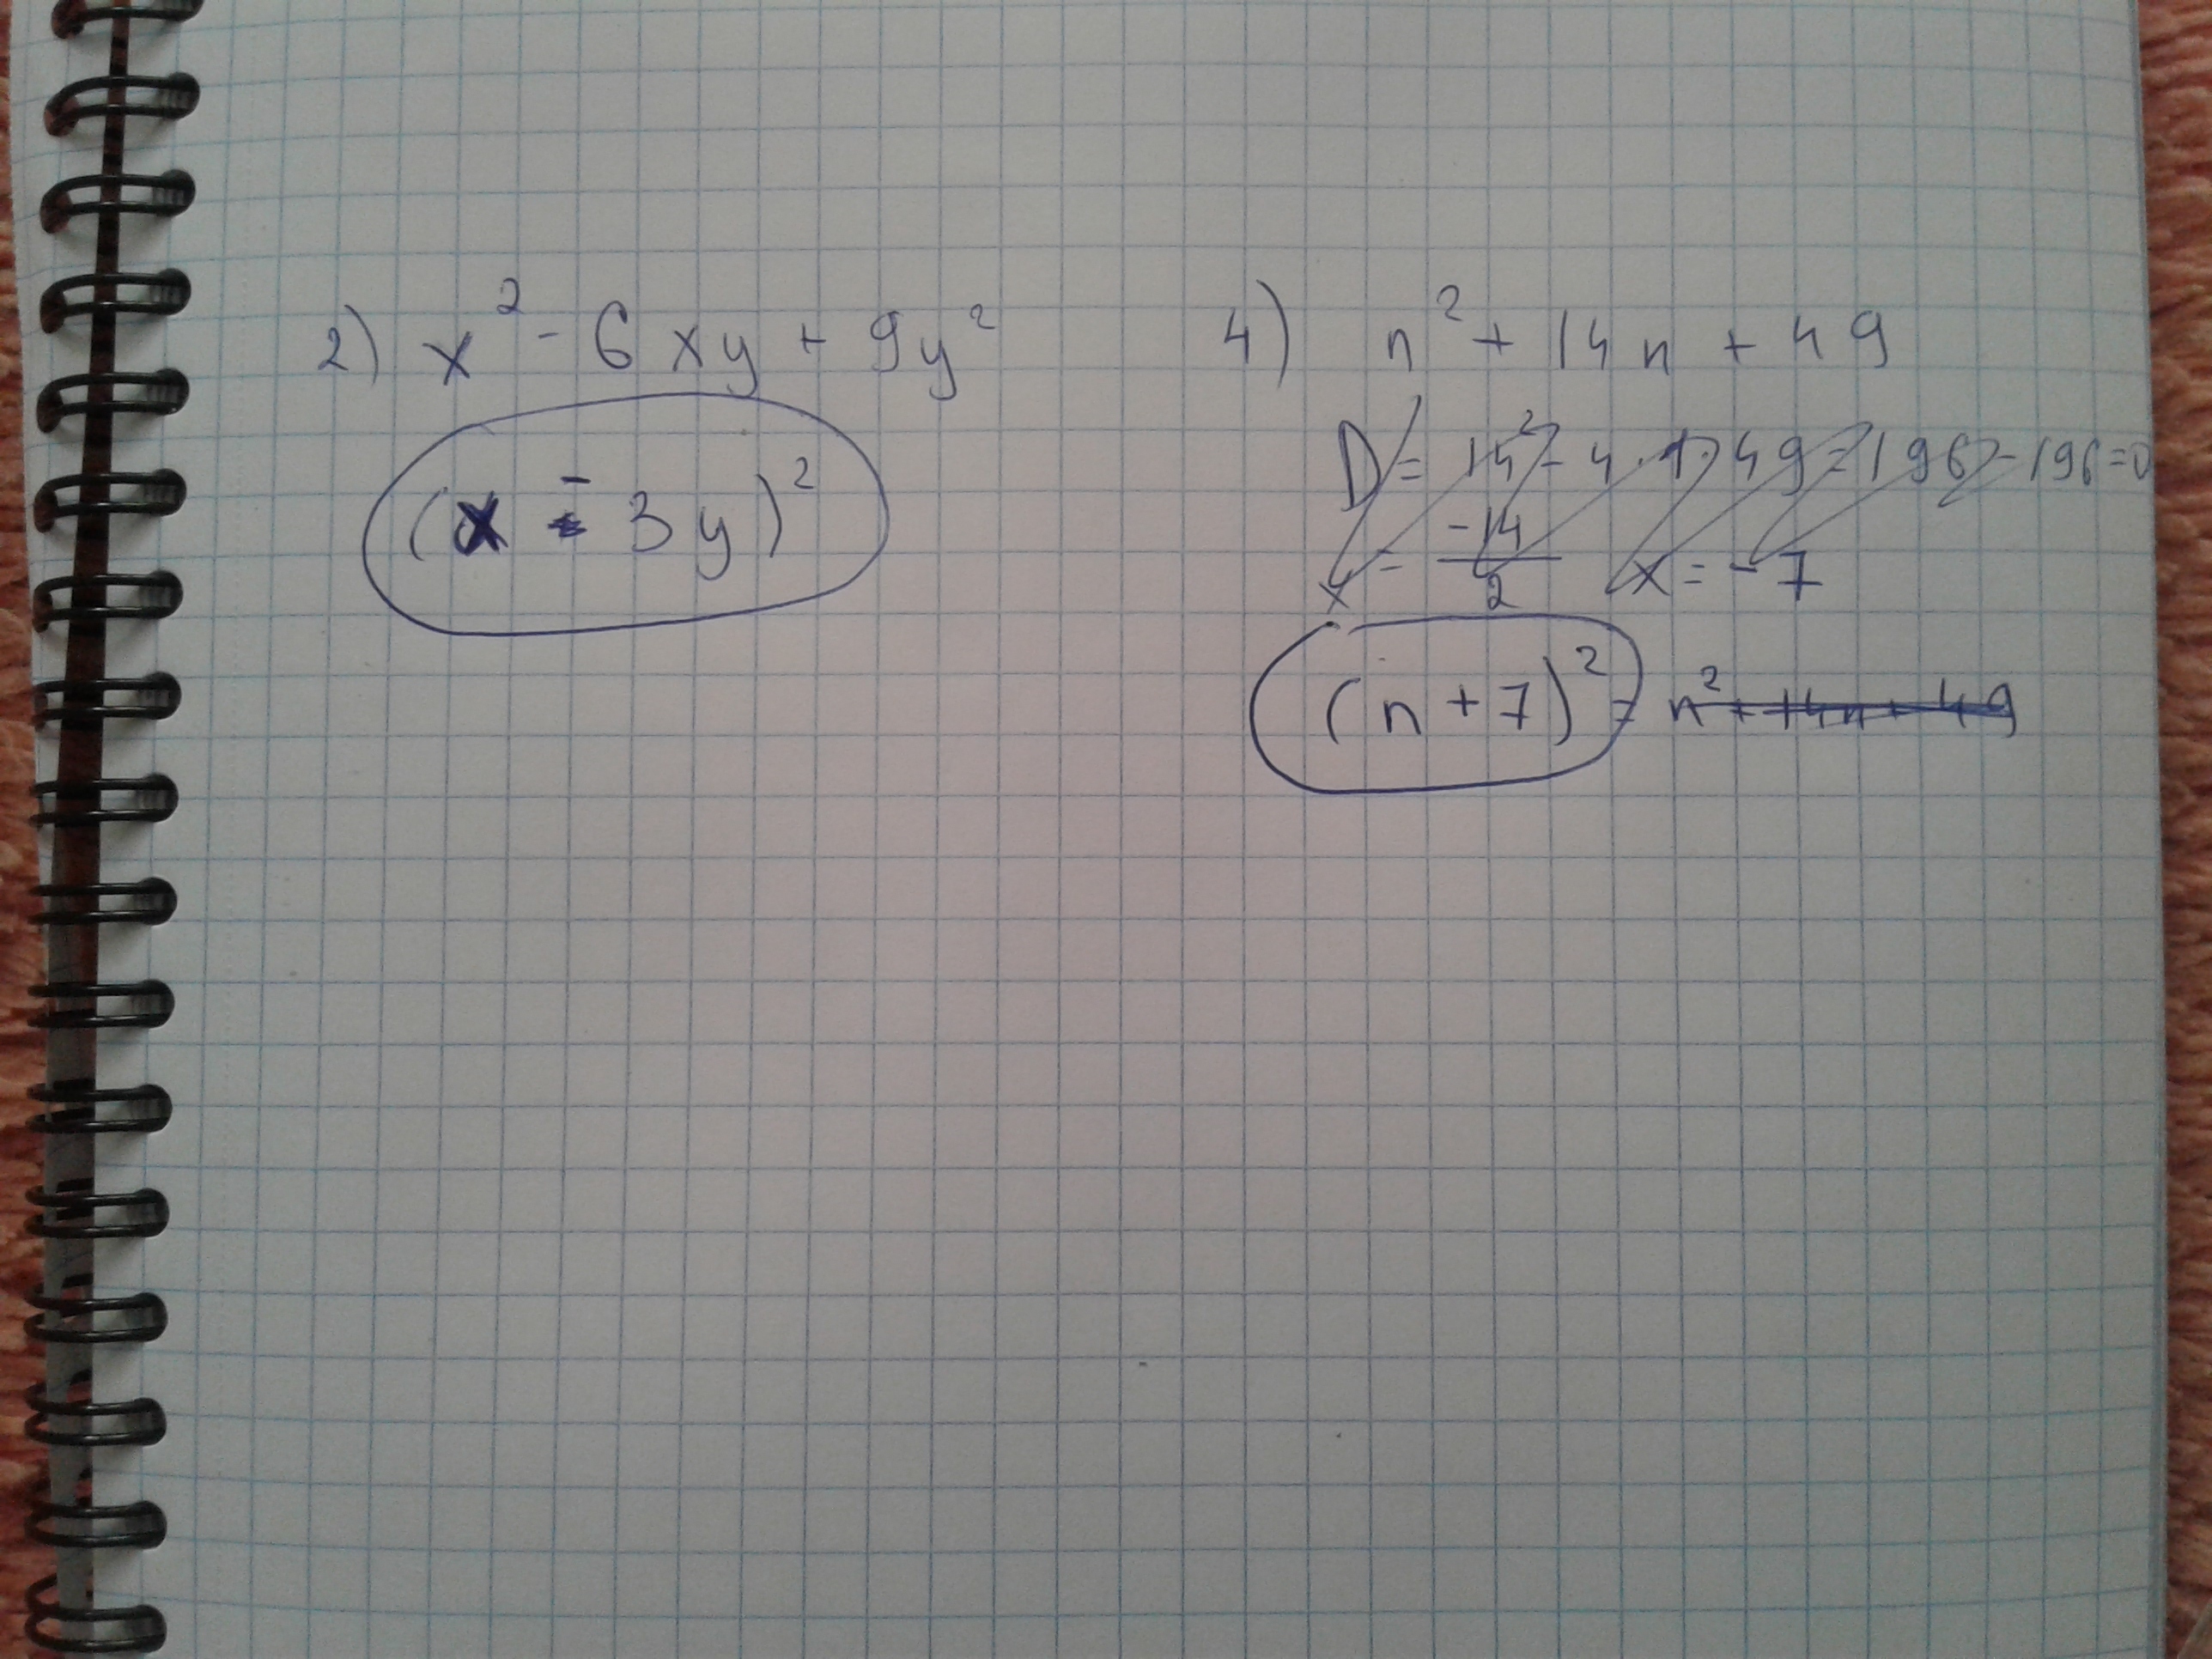 2) x² - 6xy + 9y²
(x - 3y)²
4) n² + 14n + 49
D = 14² - 4·1·49 = 196 - 196 = 0
x = -14/2 x = -7
(n + 7)² = n² + 14n + 49